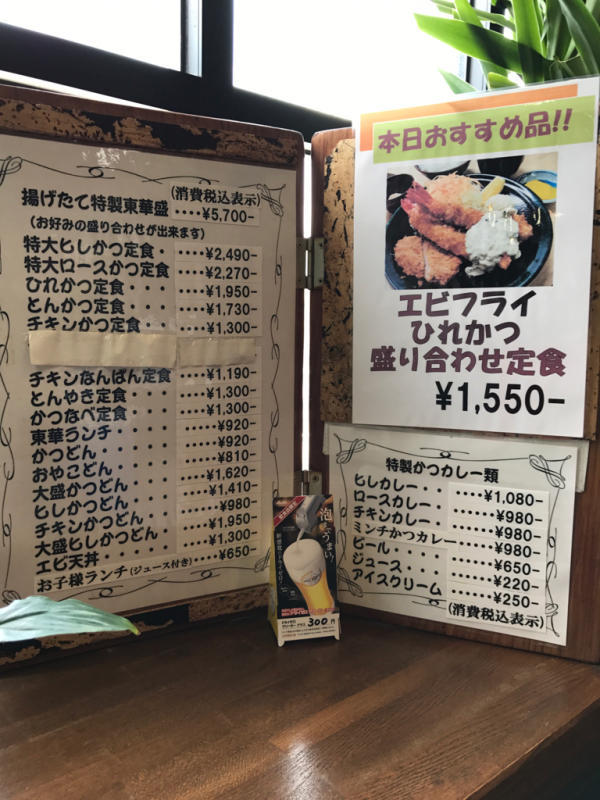 揚げたて特製東華盛 (消費税込表示) ‥‥¥5,700-
(お好みの盛り合わせが出来ます)
特大ヒレかつ定食・ ‥‥¥2,490-
特大ロースかつ定食・ ‥‥¥2,270-
ひれかつ定食・・・ ‥‥¥1,950-
とんかつ定食・・・ ‥‥¥1,730-
チキンかつ定食・・ ‥‥¥1,300-
チキンなんばん定食・ ‥‥¥1,190-
とんやき定食・・・ ‥‥¥1,300-
かつなべ定食・・・ ‥‥¥1,300-
東華ランチ・・・・ ‥‥¥920-
かつどん・・・・・ ‥‥¥920-
おやこどん・・・・ ‥‥¥810-
大盛かつどん・・・ ‥‥¥1,620-
ヒレかつどん・・・ ‥‥¥1,410-
チキンかつどん・・ ‥‥¥980-
大盛ヒレかつどん・ ‥‥¥1,950-
エビ天丼・・・・・ ‥‥¥1,300-
お子様ランチ(ジュース付き) ‥‥¥650-
本日おすすめ品!!
エビフライ
ひれかつ
盛り合わせ定食
¥1,550-
特製かつカレー類
ヒレカレー・・・ ‥‥¥1,080-
ロースカレー・・ ‥‥¥980-
チキンカレー・・ ‥‥¥980-
ミンチかつカレー ‥‥¥980-
ビール・・・・・ ‥‥¥650-
ジュース・・・・ ‥‥¥220-
アイスクリーム・ ‥‥¥250-
(消費税込表示)
泡
うまい!
300円